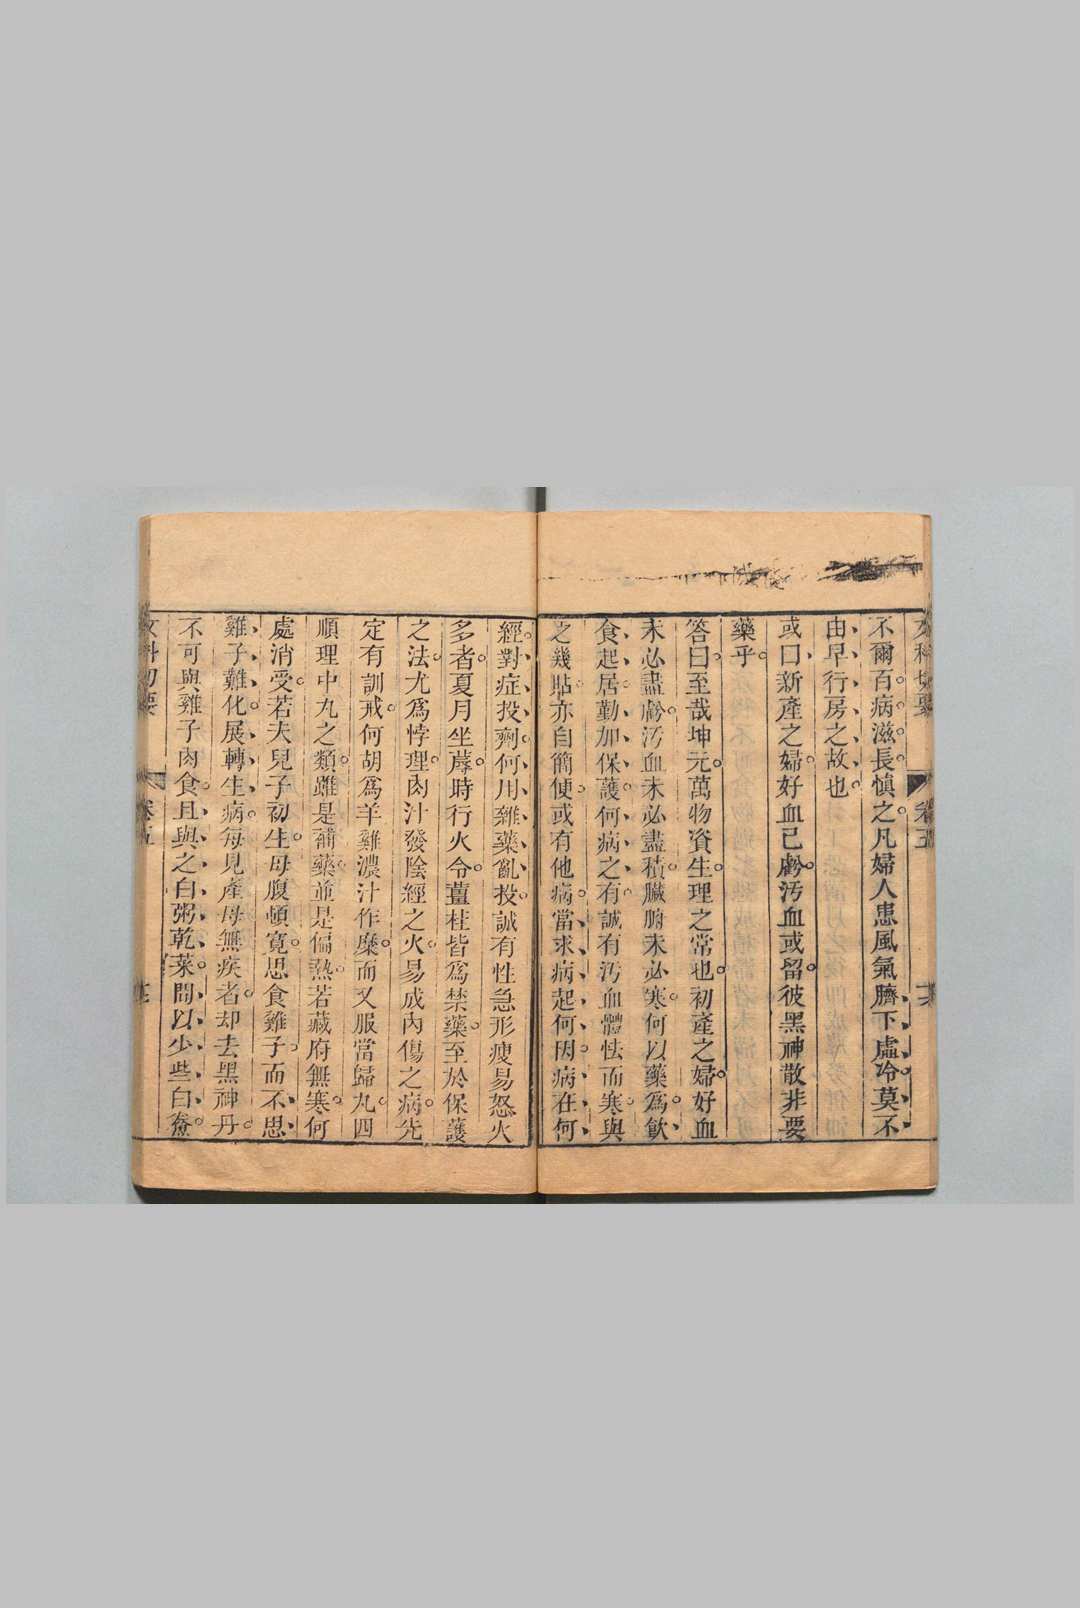 女科切要
卷五
不爾百病滋長慎之凡婦人患風氣臍下虛冷莫不
由早行房之故也
或曰新產之婦好血已虧汚血或留彼黑神散非要
藥乎
答曰至哉坤元萬物資生理之常也初產之婦好血
未必盡虧汚血未必盡積臟腑未必寒何以藥爲飲
食起居勤加保護何病之有誠有汚血體怯而寒與
之幾貼亦自簡便或有他病當求病起何因病在何
經對症投劑何用雜藥亂投誠有性急形瘦易怒火
多者夏月坐蓐時行火令薑桂皆爲禁藥至於保護
之法尤爲悖理肉汁發陰經之火易成內傷之病先
定有訓戒何胡爲羊雞濃汁作糜而又服當歸丸四
順理中丸之類雖是補藥並是偏熱若藏府無寒何
處消受若夫兒子初生母腹頓寬思食雞子而不思
雞子難化展轉生病每見產母無疾者却去黑神丹
不可與雞子肉食且與之白粥乾菜間以少些白鯗
女科切要
卷五